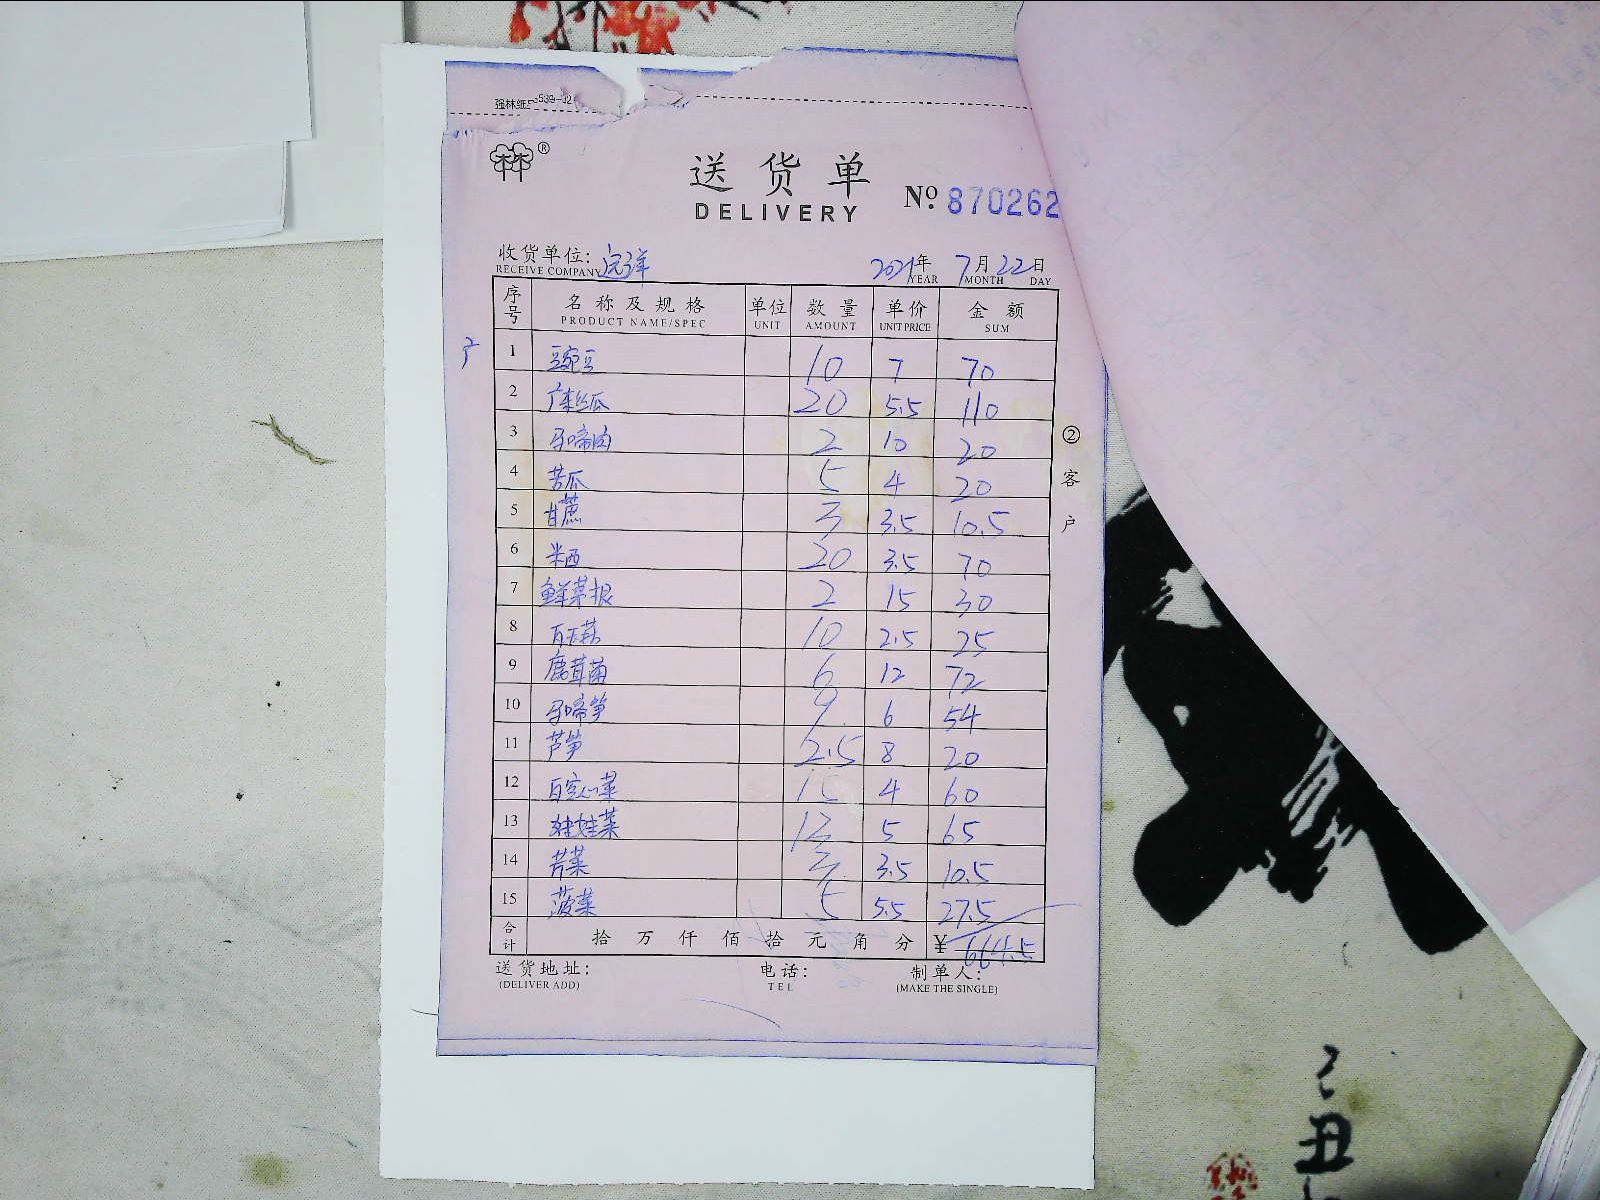 强林纸品 539-32
®
送货单
DELIVERY
№ 870262
收货单位:
RECEIVE COMPANY
2021年 7月 22日
YEAR MONTH DAY
序号 名称及规格 单位 数量 单价 金额
PRODUCT NAME/SPEC UNIT AMOUNT UNIT PRICE SUM
1 豌豆 10 7 70
2 广东丝瓜 20 5.5 110
3 马啼肉 2 10 20
4 苦瓜 5 4 20
5 甘蔗 3 3.5 10.5
6 米西 20 3.5 70
7 鲜菜根 2 15 30
8 10 2.5 25
9 鹿茸菌 6 12 72
10 马啼笋 9 6 54
11 芦笋 2.5 8 20
12 白空心菜 15 4 60
13 娃娃菜 13 5 65
14 芹菜 3 3.5 10.5
15 菠菜 5 5.5 27.5
合计 拾 万 仟 佰 拾 元 角 分 ¥ 664.5
送货地址: 电话: 制单人:
(DELIVER ADD) TEL (MAKE THE SINGLE)
② 客户
丑